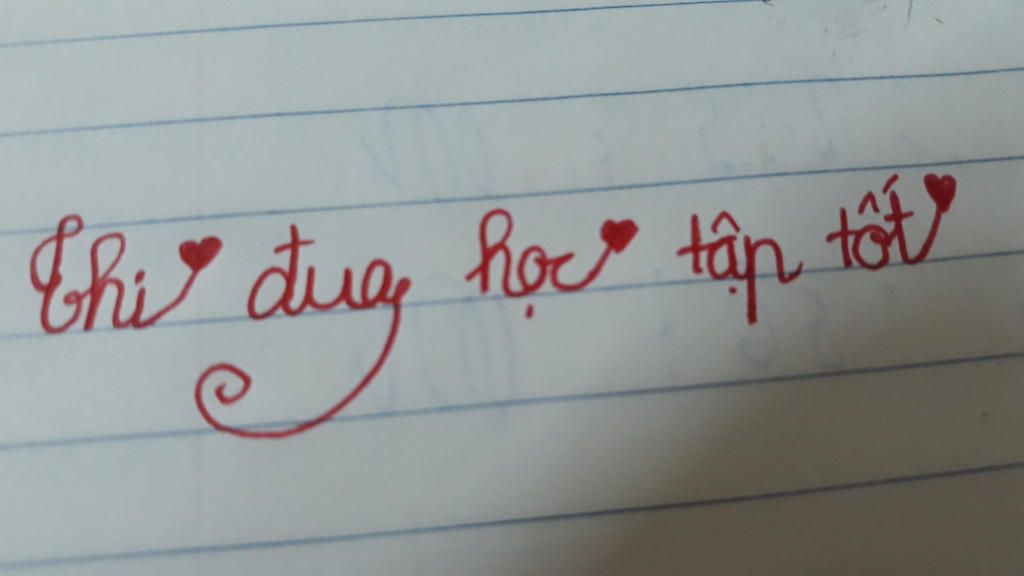 Thi đua học tập tốt